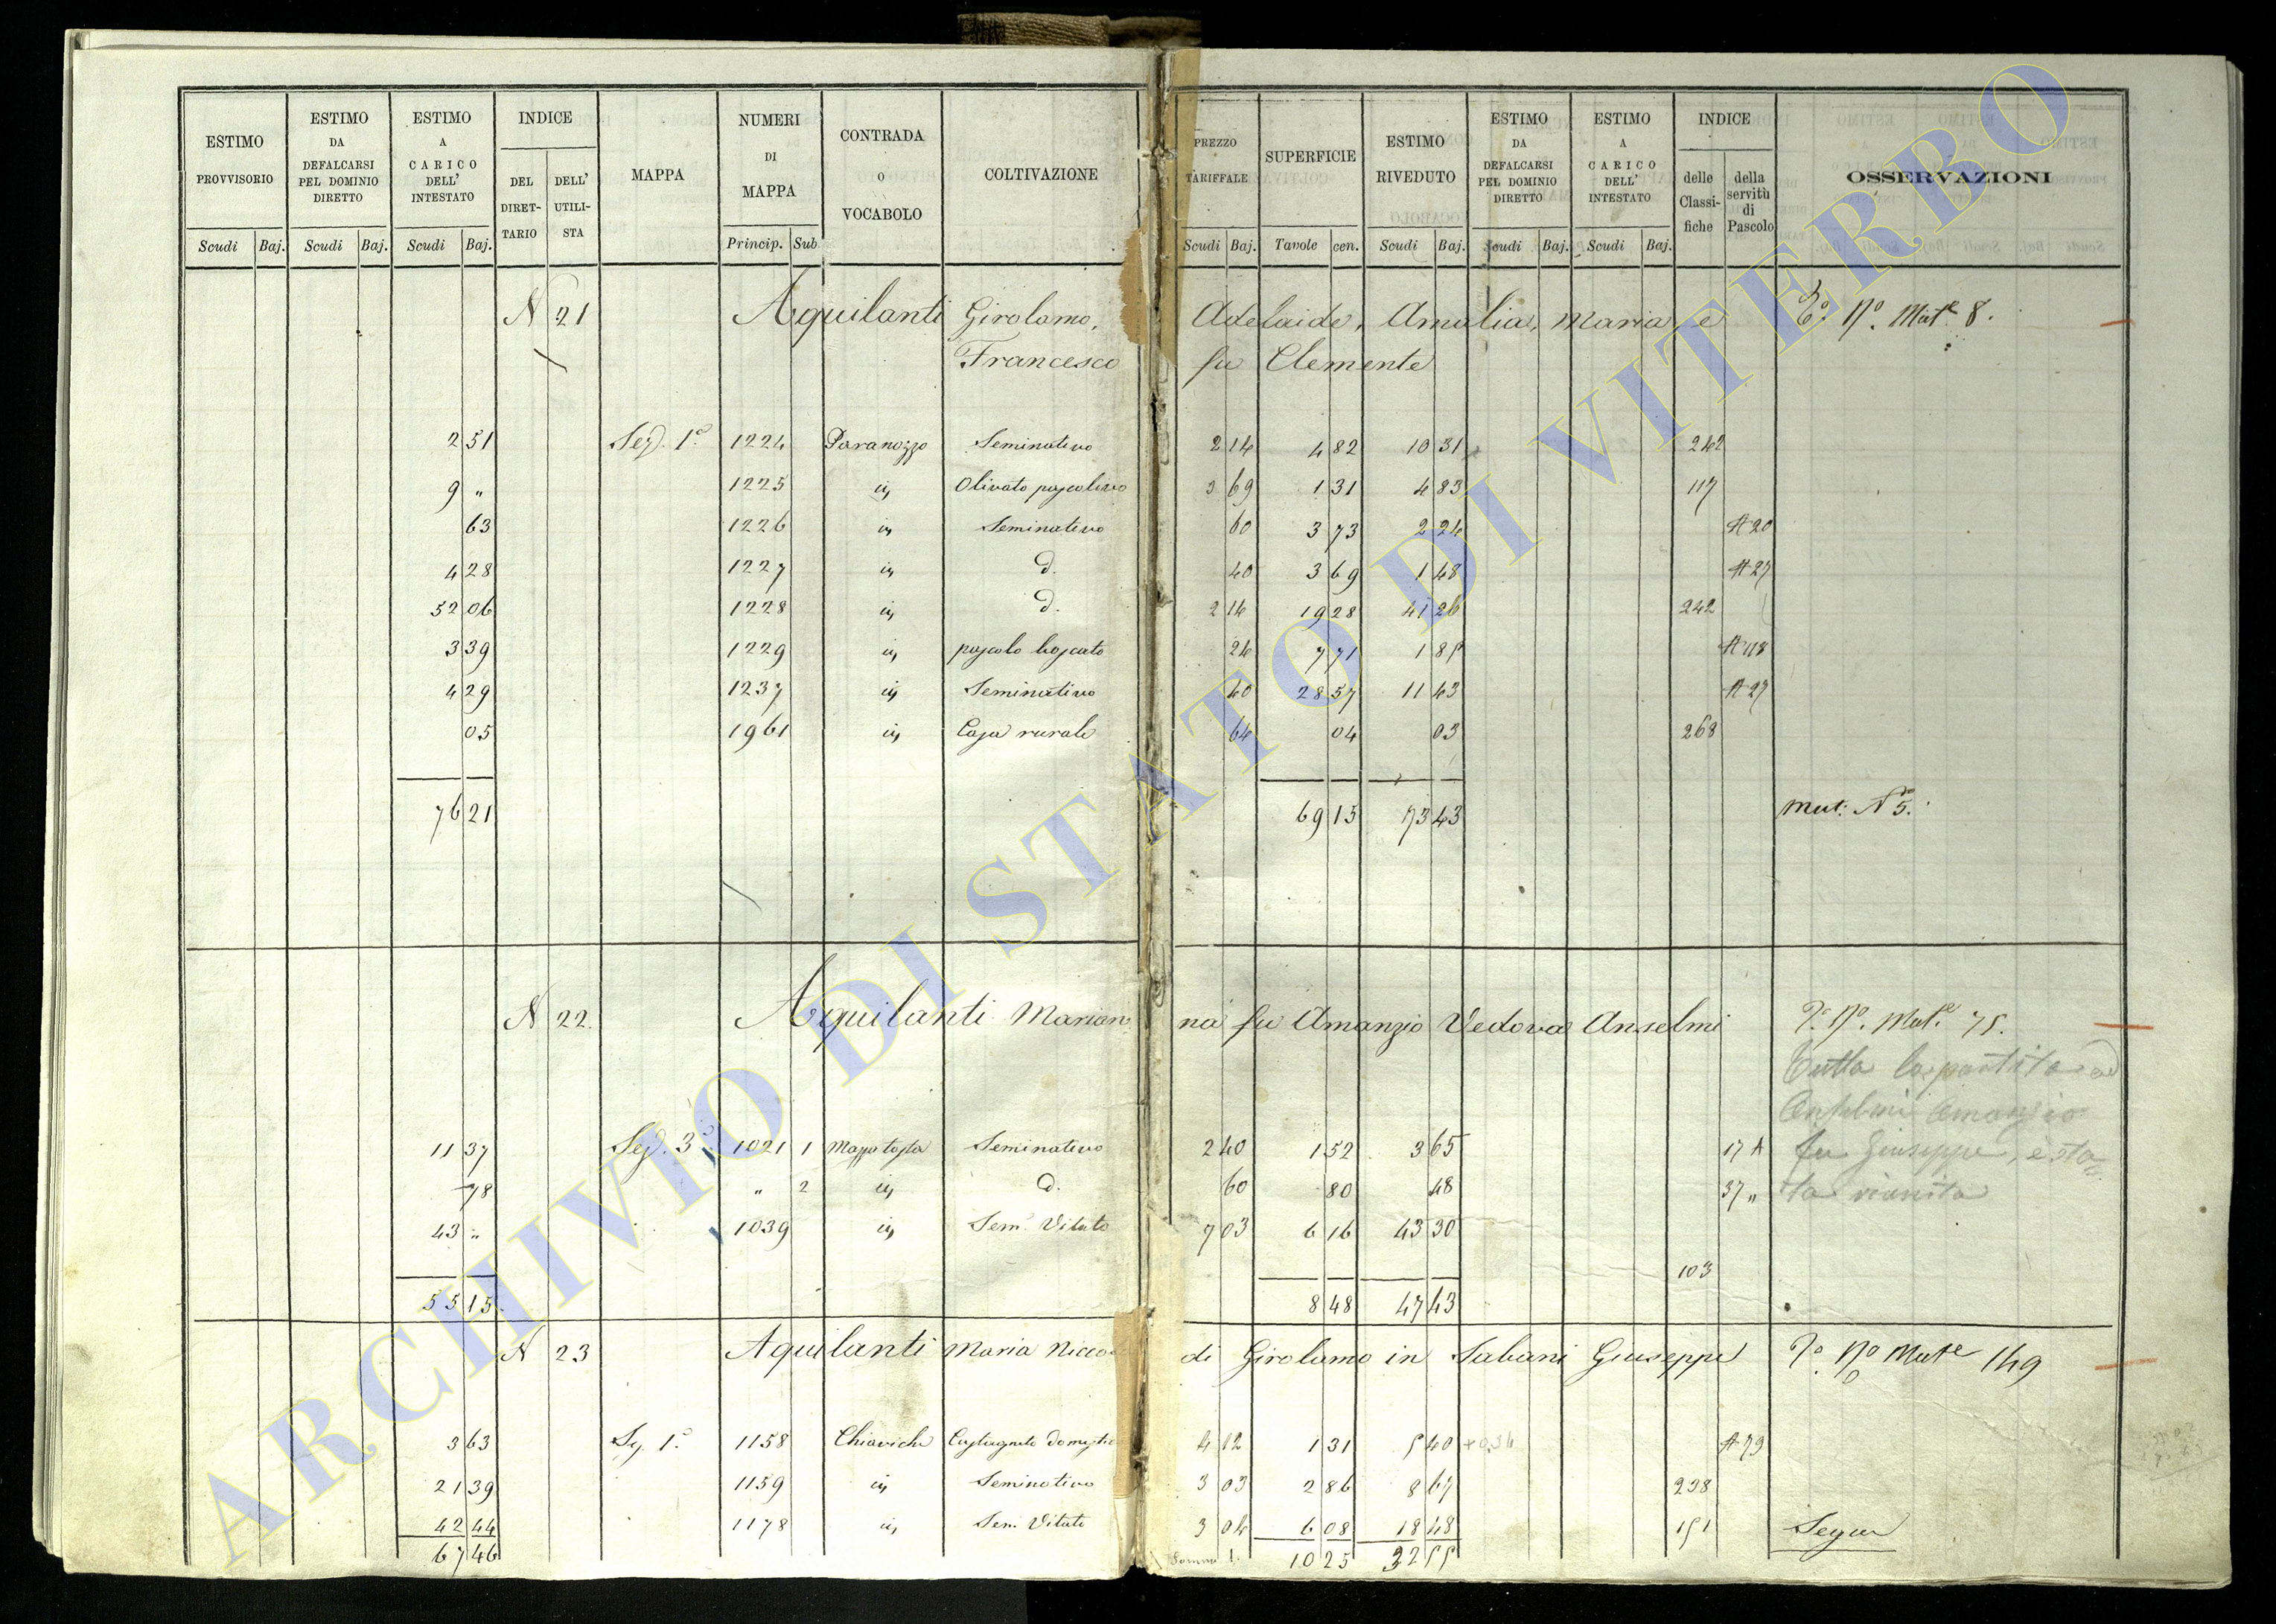 ESTIMO PROVVISORIO Scudi Baj. ESTIMO DA DEFALCARSI PEL DOMINIO DIRETTO Scudi Baj. ESTIMO A CARICO DELL' INTESTATO Scudi Baj. INDICE DEL DIRETTARIO DELL' UTILISTA MAPPA NUMERI DI MAPPA Princip. Sub CONTRADA O VOCABOLO COLTIVAZIONE PREZZO TARIFFALE Scudi Baj. SUPERFICIE Tavole cen. ESTIMO RIVEDUTO Scudi Baj. ESTIMO DA DEFALCARSI PEL DOMINIO DIRETTO Scudi Baj. ESTIMO A CARICO DELL' INTESTATO Scudi Baj. INDICE delle Classifiche della servitù di Pascolo OSSERVAZIONI
N 21 Aquilanti Girolamo, Adelaide, Amalia, Maria e Nº. Mate 8.
Francesco fu Clemente
2 51 Sez. 1ª 1224 Paranozzo Seminativo 2 14 4 82 10 31 242
9 „ 1225 id Olivato pascolivo 3 69 1 31 4 83 117
63 1226 id Seminativo 60 3 73 2 24 A 20
4 28 1227 id d. 40 3 69 1 48 A 27
52 06 1228 id d. 2 14 19 28 41 26 242
3 39 1229 id pascolo boscato 24 7 71 1 85
4 29 1237 id Seminativo 40 28 57 11 43 A 27
05 1961 id Casa rurale 64 04 03 268
76 21 69 15 73 43 Mut: Nº 5.
N 22. Aquilanti Marianna fu Amanzio Vedova Anselmi Nº. Mate. 75.
Tutta la partita ad
Anselmi Amanzio
11 37 Sez. 3ª 1021 1 Seminativo 2 40 1 52 3 65 17 A fu Giuseppe, è sta
78 „ 2 id d. 60 80 48 37 „ ta riunita
43 „ 1039 id Sem. Vitato 7 03 6 16 43 30
103
55 15 8 48 47 43
N 23 Aquilanti Maria di Girolamo in Sabani Giuseppe Nº Mate 149
3 63 Sez. 1ª 1158 Chiaviche Castagneto Domestico 4 12 1 31 5 40 A 79
21 39 1159 id Seminativo 3 03 2 86 8 67 238
42 44 1178 id Sem. Vitato 3 04 6 08 18 48 151 Segue
67 46 10 25 32 55
ARCHIVIO DI STATO DI VITERBO